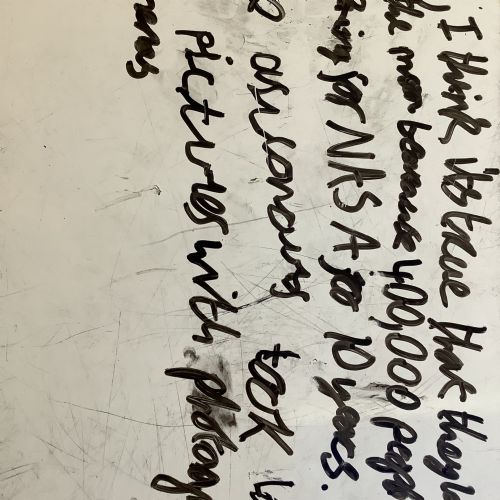 I think its true that they
the moon because 400,000 peop
for NASA for 10 years.
took
pictures with photog